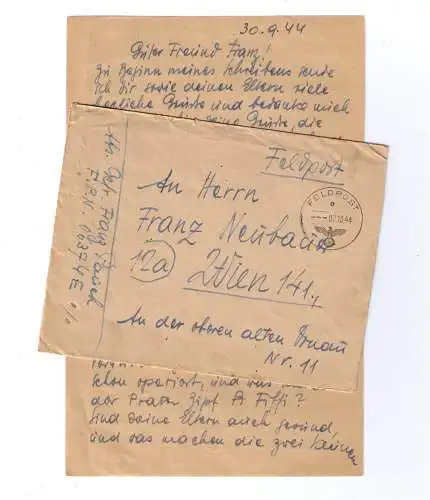 30.9.44
Guter Freund Franz!
Zu Beginn meines Schreibens sende
ich dir sowie deinen Eltern viele
herzliche Grüsse und bedanke mich
deine Grüsse, die
Feldpost
An Herrn
Franz Neubauer
12a
Wien 141.,
An der oberen alten Donau
Nr. 11
FELDPOST
02.10.44
Abs. Gefr. Franz
F.P.N. 00374E
schon operiert, und was
der Prater Zipf
Sind deine Eltern auch gesund,
und was machen die zwei kleinen